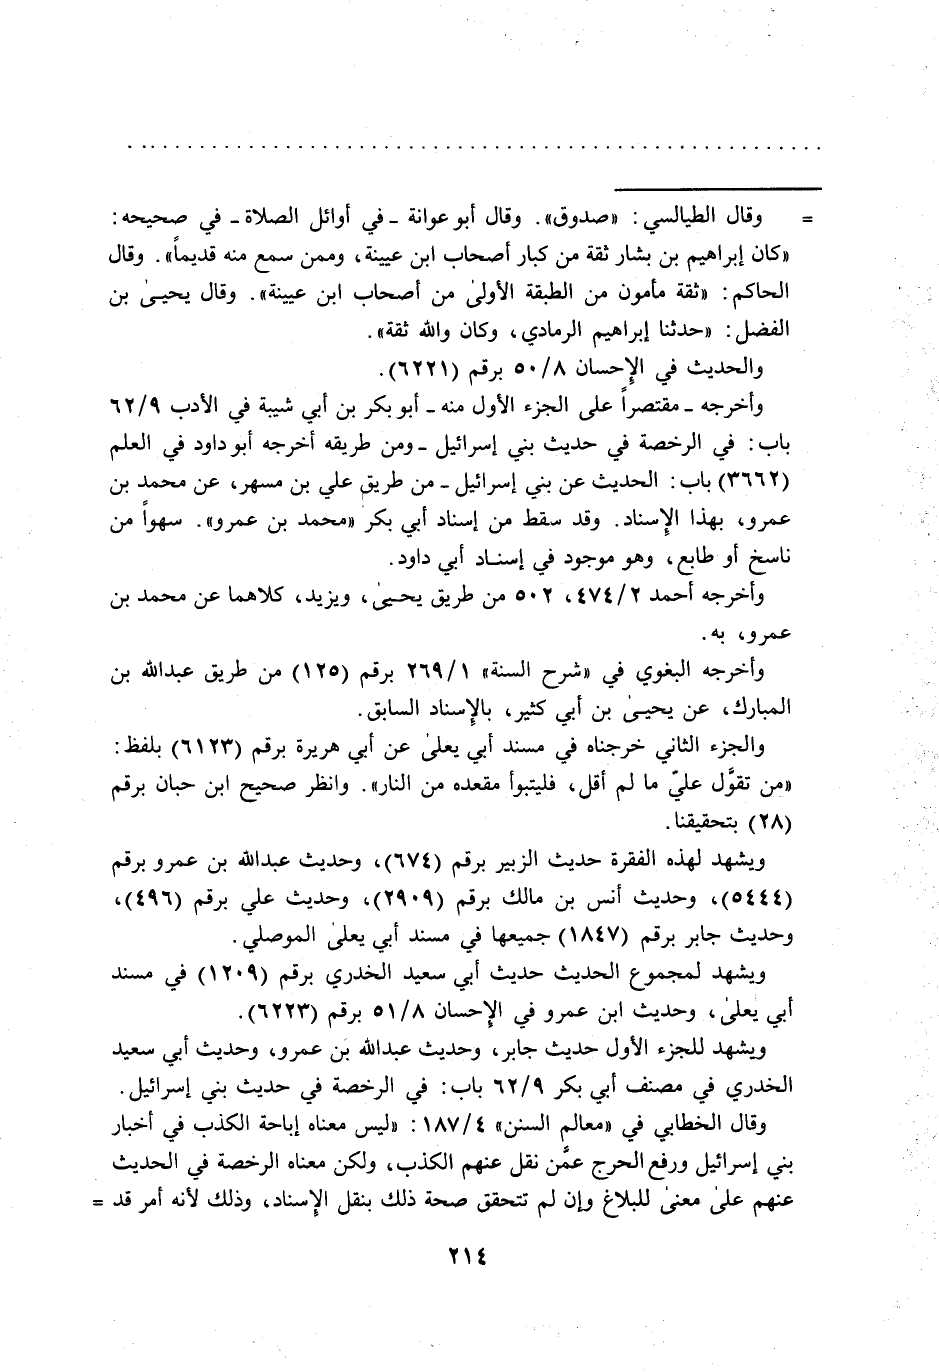 = وقال الطيالسي: «صدوق». وقال أبو عوانة ـ في أوائل الصلاة ـ في صحيحه:
«كان إبراهيم بن بشار ثقة من كبار أصحاب ابن عيينة، وممن سمع منه قديماً». وقال
الحاكم: «ثقة مأمون من الطبقة الأولىٰ من أصحاب ابن عيينة». وقال يحيىٰ بن
الفضل: «حدثنا إبراهيم الرمادي، وكان والله ثقة».
والحديث في الإحسان ٥٠/٨ برقم (٦٢٢١).
وأخرجه ـ مقتصراً على الجزء الأول منه ـ أبو بكر بن أبي شيبة في الأدب ٦٢/٩
باب: في الرخصة في حديث بني إسرائيل ـ ومن طريقه أخرجه أبو داود في العلم
(٣٦٦٢) باب: الحديث عن بني إسرائيل ـ من طريق علي بن مسهر، عن محمد بن
عمرو، بهذا الإسناد. وقد سقط من إسناد أبي بكر «محمد بن عمرو». سهواً من
ناسخ أو طابع، وهو موجود في إسناد أبي داود.
وأخرجه أحمد ٤٧٤/٢، ٥٠٢ من طريق يحيىٰ، ويزيد، كلاهما عن محمد بن
عمرو، به.
وأخرجه البغوي في «شرح السنة» ٢٦٩/١ برقم (١٢٥) من طريق عبدالله بن
المبارك، عن يحيىٰ بن أبي كثير، بالإسناد السابق.
والجزء الثاني خرجناه في مسند أبي يعلىٰ عن أبي هريرة برقم (٦١٢٣) بلفظ:
«من تقوَّل عليّ ما لم أقل، فليتبوأ مقعده من النار». وانظر صحيح ابن حبان برقم
(٢٨) بتحقيقنا.
ويشهد لهذه الفقرة حديث الزبير برقم (٦٧٤)، وحديث عبدالله بن عمرو برقم
(٥٤٤٤)، وحديث أنس بن مالك برقم (٢٩٠٩)، وحديث علي برقم (٤٩٦)،
وحديث جابر برقم (١٨٤٧) جميعها في مسند أبي يعلىٰ الموصلي.
ويشهد لمجموع الحديث حديث أبي سعيد الخدري برقم (١٢٠٩) في مسند
أبي يعلىٰ، وحديث ابن عمرو في الإحسان ٥١/٨ برقم (٦٢٢٣).
ويشهد للجزء الأول حديث جابر، وحديث عبدالله بن عمرو، وحديث أبي سعيد
الخدري في مصنف أبي بكر ٦٢/٩ باب: في الرخصة في حديث بني إسرائيل.
وقال الخطابي في «معالم السنن» ١٨٧/٤: «ليس معناه إباحة الكذب في أخبار
بني إسرائيل ورفع الحرج عمَّن نقل عنهم الكذب، ولكن معناه الرخصة في الحديث
عنهم علىٰ معنىٰ للبلاغ وإن لم تتحقق صحة ذلك بنقل الإسناد، وذلك لأنه أمر قد =
٢١٤